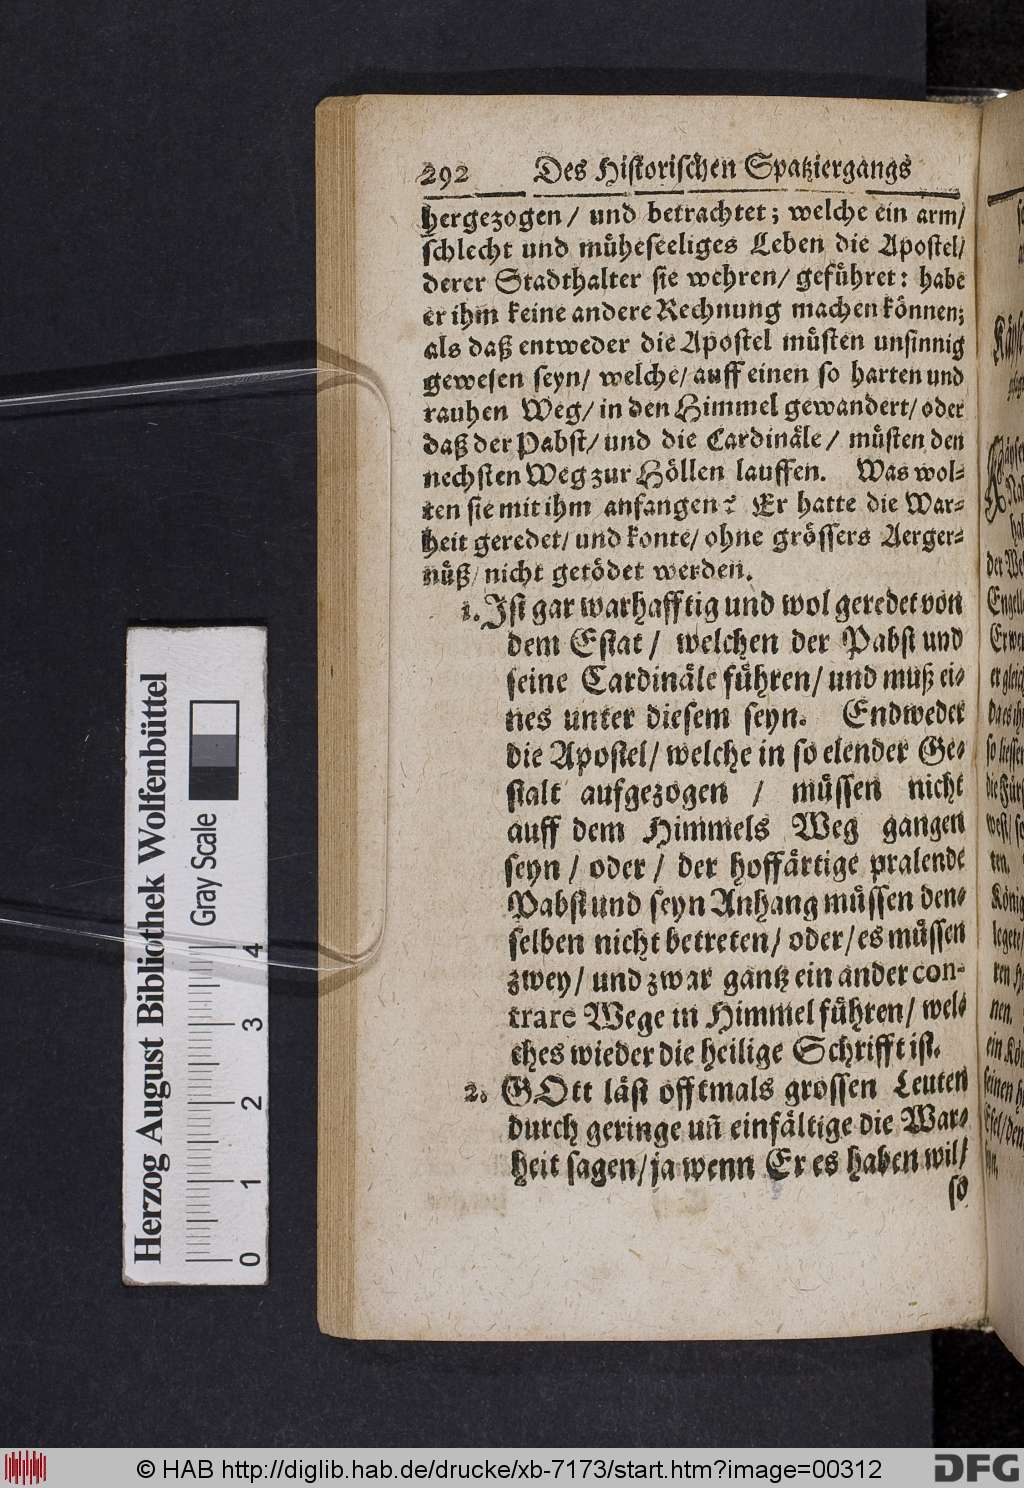 292 Des Historischen Spatziergangs
hergezogen / und betrachtet; welche ein arm/
schlecht und müheseeliges Leben die Apostel/
derer Stadthalter sie wehren / geführet: habe
er ihm keine andere Rechnung machen können;
als daß entweder die Apostel müsten unsinnig
gewesen seyn/ welche/ auff einen so harten und
rauhen Weg/ in den Himmel gewandert/ oder
daß der Pabst/ und die Cardinäle / müsten den
nechsten Weg zur Höllen lauffen. Was wol-
ten sie mit ihm anfangen? Er hatte die War-
heit geredet/ und konte/ ohne grössers Aerger-
nüß/ nicht getödet werden.
1. Ist gar warhafftig und wol geredet von
dem Estat / welchen der Pabst und
seine Cardinäle führen/ und muß ei-
nes unter diesem seyn. Endweder
die Apostel/ welche in so elender Ge-
stalt aufgezogen / müssen nicht
auff dem Himmels Weg gangen
seyn / oder / der hoffärtige pralende
Pabst und seyn Anhang müssen den-
selben nicht betreten/ oder/ es müssen
zwey/ und zwar gantz ein ander con-
trare Wege in Himmel führen/ wel-
ches wieder die heilige Schrifft ist.
2. GOtt läst offtmals grossen Leuten
durch geringe uñ einfältige die War-
heit sagen/ ja wenn Er es haben wil/
so
Herzog August Bibliothek Wolfenbüttel
Gray Scale
0 1 2 3 4
© HAB http://diglib.hab.de/drucke/xb-7173/start.htm?image=00312
DFG